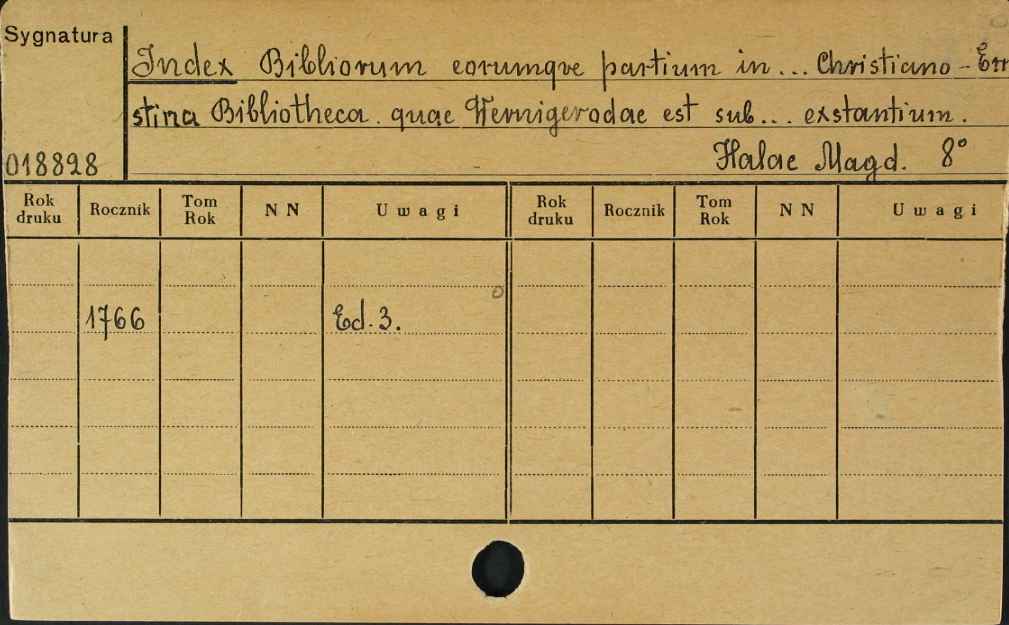 Sygnatura
Index Bibliorum eorumqve partium in... Christiano-Ern
stina Bibliotheca. quae Wernigerodae est sub... exstantium.
018828
Halae Magd. 8°
Rok druku Rocznik Tom Rok NN Uwagi Rok druku Rocznik Tom Rok NN Uwagi
1766 Ed. 3.